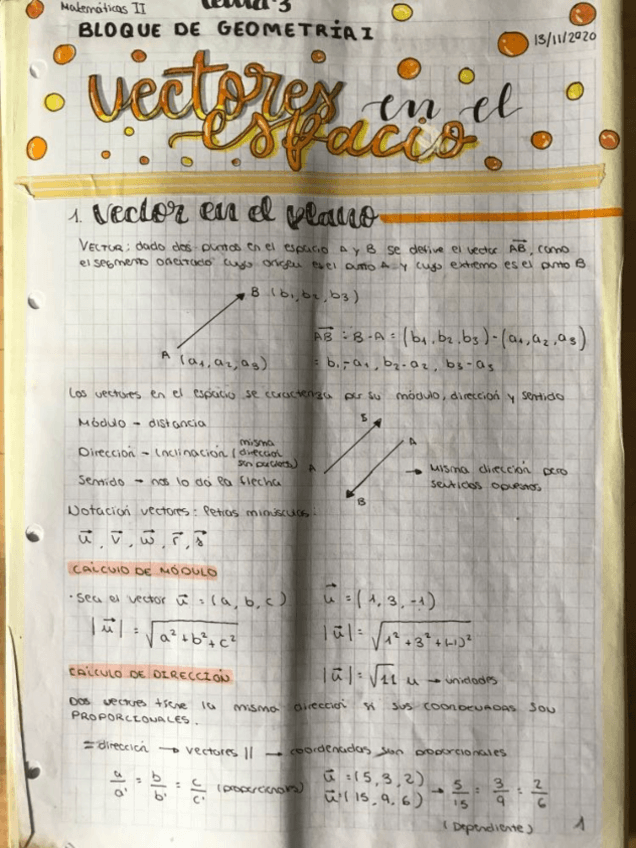 Matemáticas II
Tema 3
BLOQUE DE GEOMETRÍA I
13/11/2020
Vectores en el
espacio
1. Vector en el plano
VECTOR: dado dos puntos en el espacio A y B se define el vector AB, como
el segmento orientado cuyo origen es el punto A y cuyo extremo es el punto B
B (b1, b2, b3)
A (a1, a2, a3)
AB = B - A = (b1, b2, b3) - (a1, a2, a3)
= b1 - a1, b2 - a2, b3 - a3
Los vectores en el espacio se caracteriza por su módulo, dirección y sentido
Módulo → distancia
Dirección → Inclinación (misma
dirección
son paralelos)
Sentido → nos lo da la flecha
B
A
A
B
→ Misma dirección pero
sentidos opuestos
Notación vectores: letras minúsculas:
u, v, w, r, s
CÁLCULO DE MÓDULO
· Sea el vector u = (a, b, c)
|u| = √a² + b² + c²
u = (1, 3, -1)
|u| = √1² + 3² + (-1)²
|u| = √11 u → unidades
CÁLCULO DE DIRECCIÓN
DOS vectores tiene la misma dirección si SUS COORDENADAS SON
PROPORCIONALES.
= dirección → vectores || → coordenadas son proporcionales
a/a' = b/b' = c/c' (proporcionales)
u = (5, 3, 2)
u' (15, 9, 6) → 5/15 = 3/9 = 2/6
(Dependiente)
1